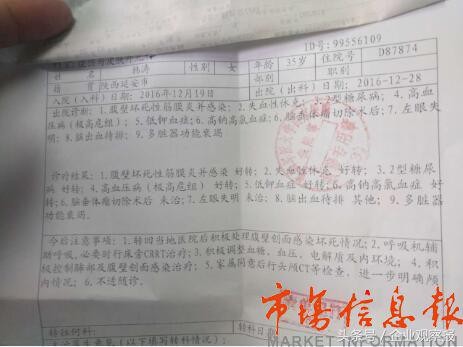 ID号:99556109
姓 名 韩涛 性别 女 年龄 35岁 住院号 D87874
籍 贯 陕西延安市 部别 职别
入院(入科)日期:2016年12月19日 出院(出科)日期:2016-12-28
出院诊断:1.腹壁坏死性筋膜炎并感染 2.失血性休克 3.2型糖尿病 4.高血
压病(极高危组) 5.低钾血症; 6.高钠高氯血症; 6.脑垂体瘤切除术后; 7.左眼失
明; 8.脑出血待排; 9.多脏器功能衰竭
诊治结果:1.腹壁坏死性筋膜炎并感染 好转; 2.失血性休克 好转; 3.2型糖尿
病 好转; 4.高血压病(极高危组) 好转; 5.低钾血症 好转; 6.高钠高氯血症 好
转; 6.脑垂体瘤切除术后 未治; 7.左眼失明 未治; 8.脑出血待排 其他; 9.多脏器
功能衰竭。
今后注意事项:1.转回当地医院后积极处理腹壁创面感染坏死情况; 2.呼吸机辅
助呼吸,必要时行床旁CRRT治疗; 3.积极调整血糖、血压、电解质及内环境 4.积
极控制肺部及腹壁创面感染治疗; 5.家属同意后行头颅CT等检查,进一步明确颅
内情况; 6.不适随诊。
转往何科: 转科日期
市场信息报
MARKET INFORMATION
头条号/企业观察报